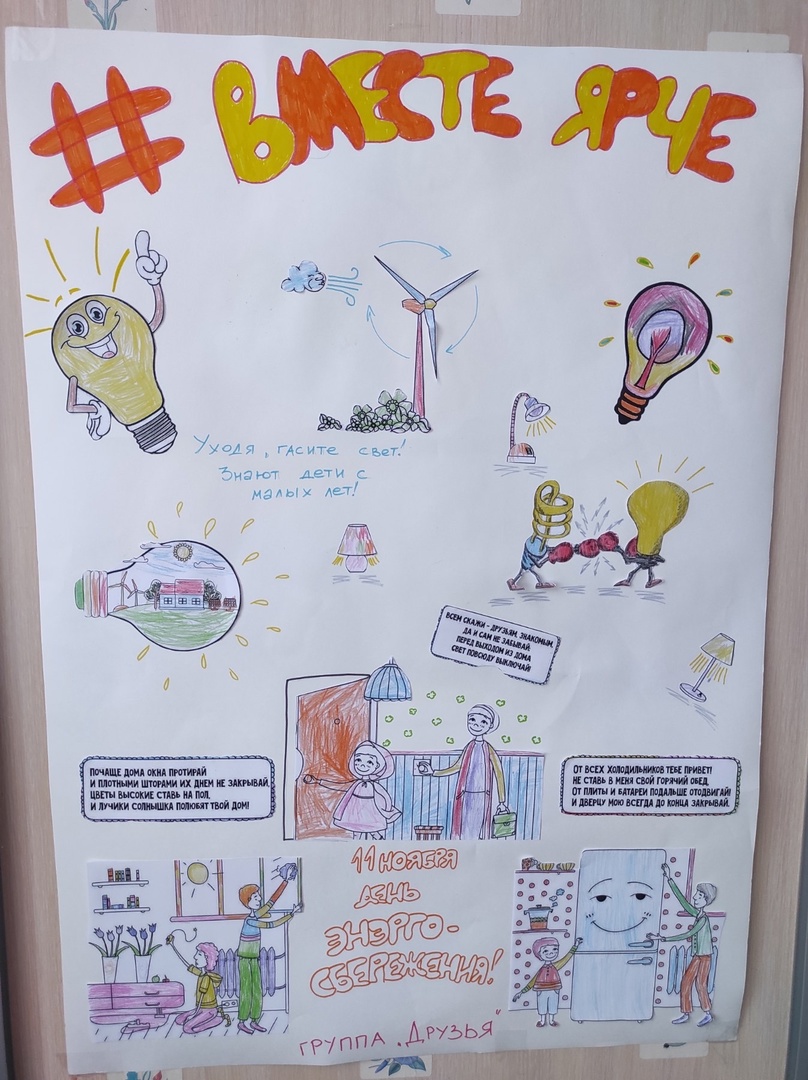 # ВМЕСТЕ ЯРЧЕ
Уходя, гасите свет!
Знают дети с
малых лет!
ВСЕМ СКАЖИ - ДРУЗЬЯМ, ЗНАКОМЫМ,
ДА И САМ НЕ ЗАБЫВАЙ
ПЕРЕД ВЫХОДОМ ИЗ ДОМА
СВЕТ ПОВСЮДУ ВЫКЛЮЧАЙ!
ПОЧАЩЕ ДОМА ОКНА ПРОТИРАЙ
И ПЛОТНЫМИ ШТОРАМИ ИХ ДНЕМ НЕ ЗАКРЫВАЙ,
ЦВЕТЫ ВЫСОКИЕ СТАВЬ НА ПОЛ,
И ЛУЧИКИ СОЛНЫШКА ПОЛЮБЯТ ТВОЙ ДОМ!
ОТ ВСЕХ ХОЛОДИЛЬНИКОВ ТЕБЕ ПРИВЕТ!
НЕ СТАВЬ В МЕНЯ СВОЙ ГОРЯЧИЙ ОБЕД,
ОТ ПЛИТЫ И БАТАРЕИ ПОДАЛЬШЕ ОТОДВИГАЙ
И ДВЕРЦУ МОЮ ВСЕГДА ДО КОНЦА ЗАКРЫВАЙ.
11 НОЯБРЯ
ДЕНЬ
ЭНЭРГО-
СБЕРЕЖЕНИЯ!
ГРУППА „ДРУЗЬЯ"